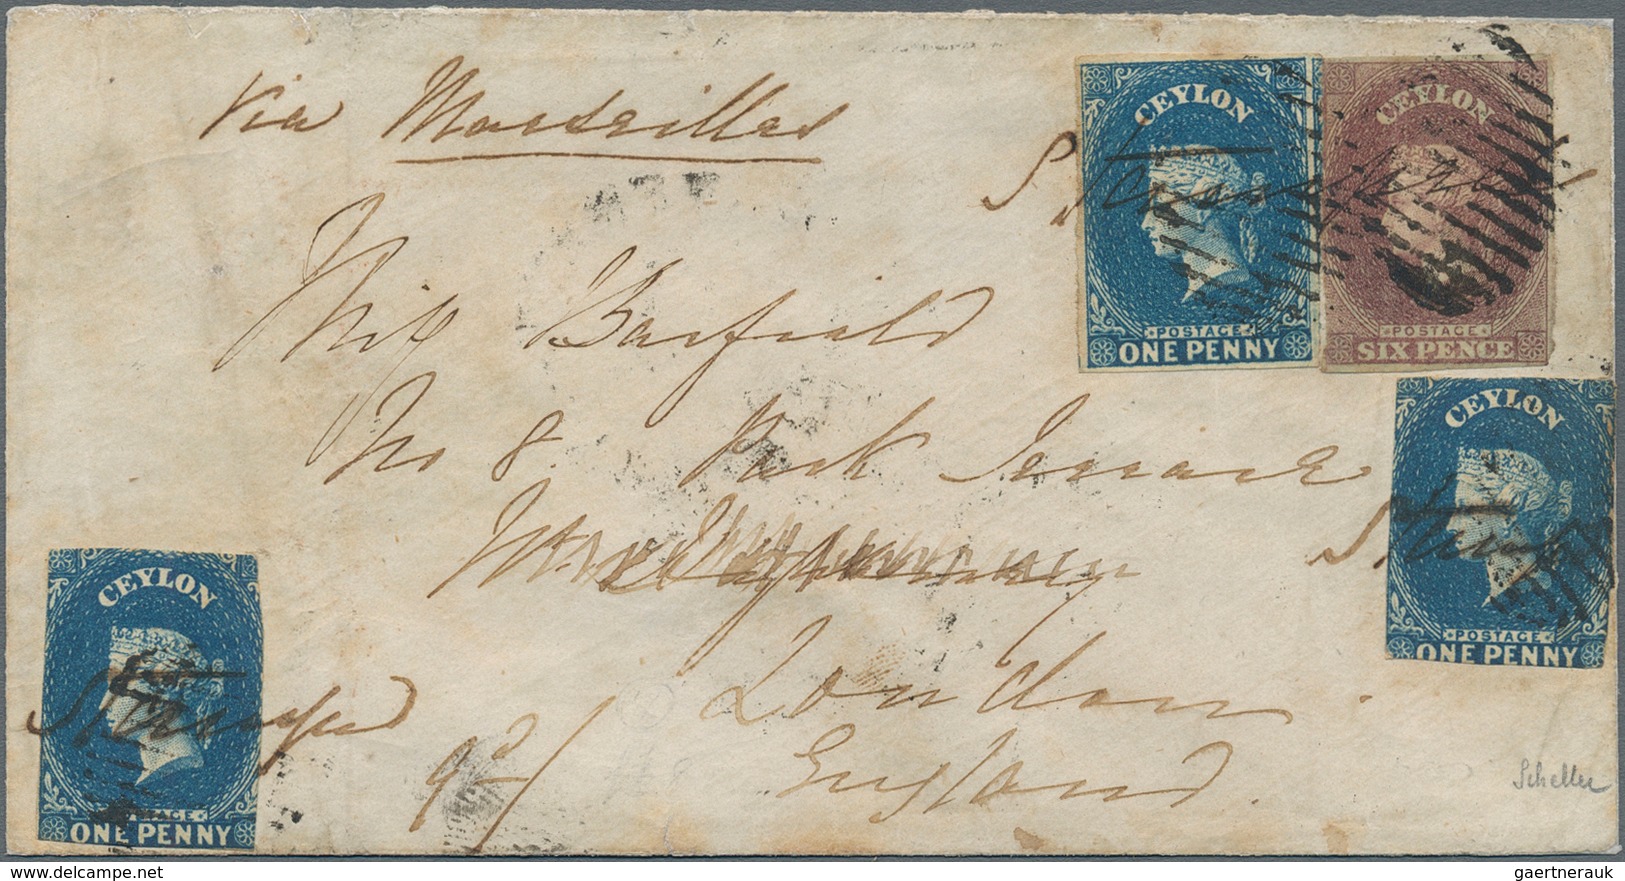 Via Marseilles
CEYLON
POSTAGE
ONE PENNY
CEYLON
POSTAGE
SIX PENCE
Stamped
Miss Barfield
No 8. Park Terrace
CEYLON
POSTAGE
ONE PENNY
Stamped
London.
England.
CEYLON
POSTAGE
ONE PENNY
Stamped
9d/
Scheller
www.delcampe.net
gaertnerauk